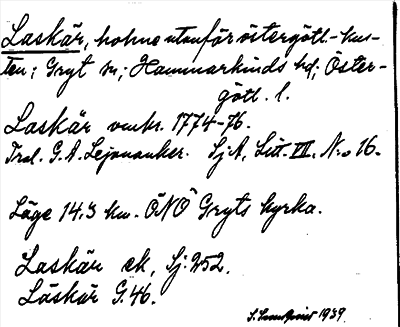 Laskär, holme utanför östergötl.-kus-
ten; Gryt sn; Hammarkinds hd; Öster-
götl. l.
Laskär omkr. 1774-76.
Trol. G. A. Lejonanker. Sj.A, Litt. VII. No 16.
Läge 14.3 km. ÖNÖ Gryts kyrka.
Laskär ek, Sj: 252.
Låskär G.46.
S. Lundqvist 1939.